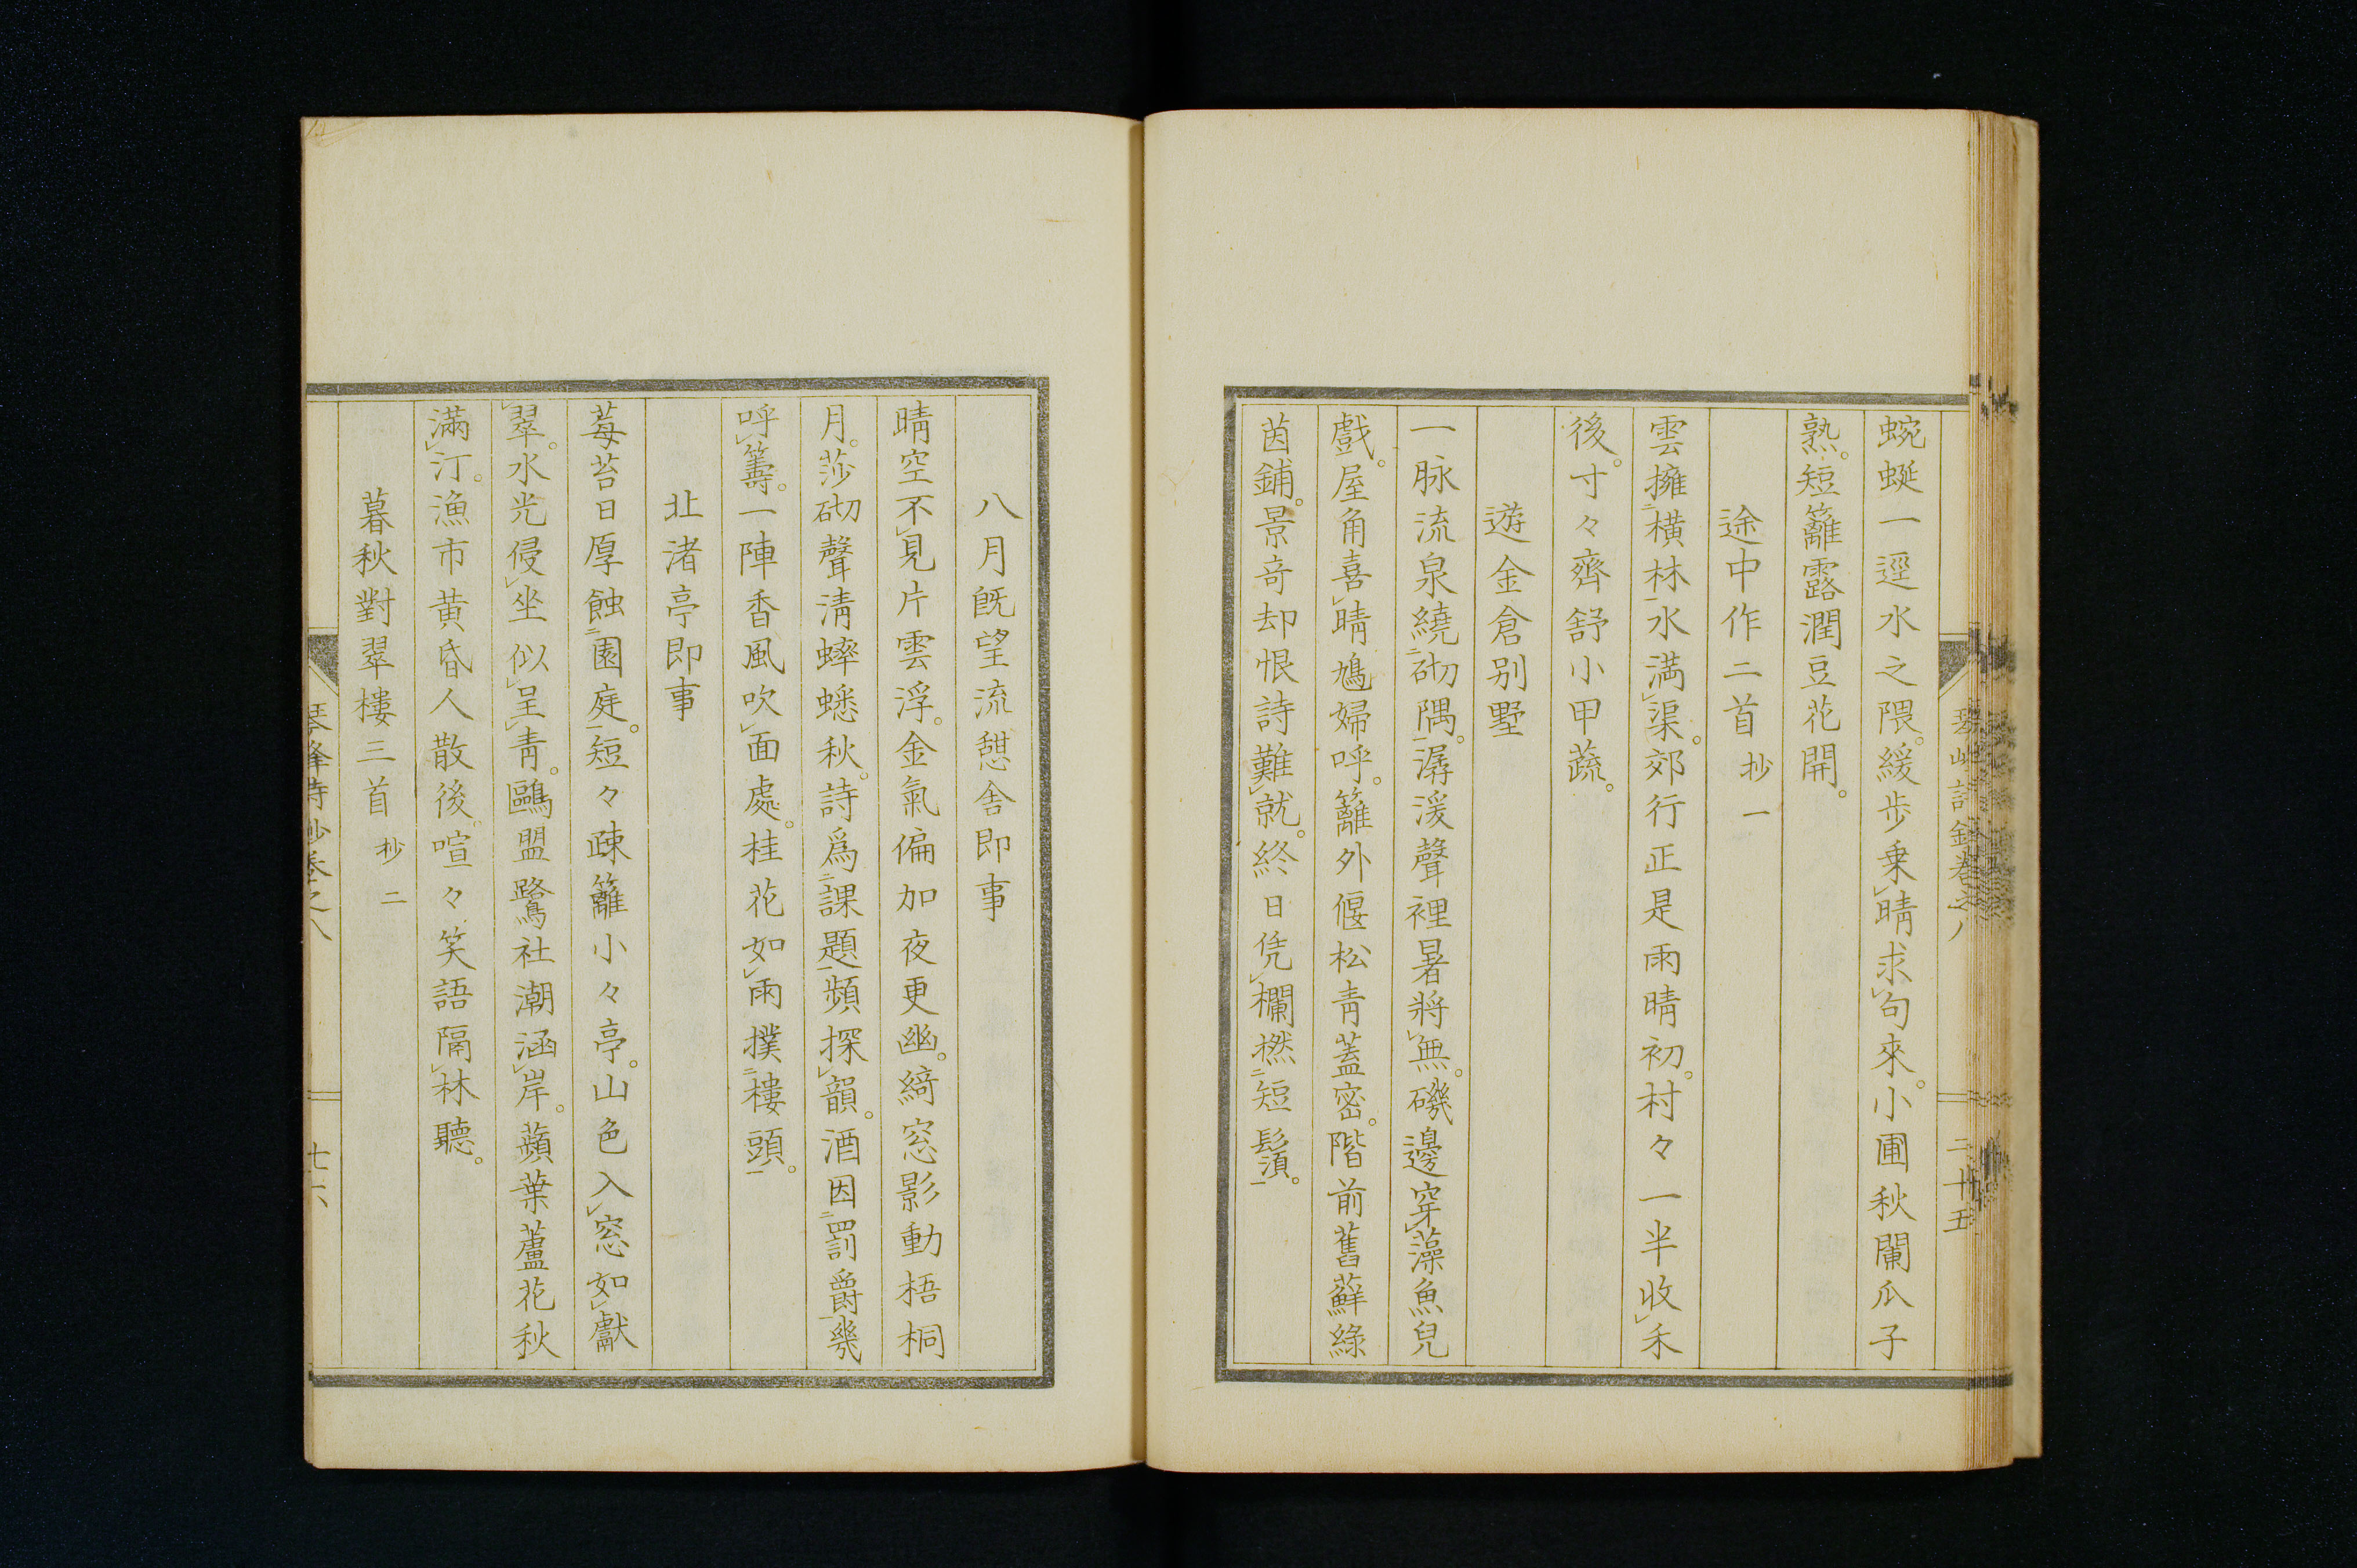 蜿蜒一逕水之隈。緩步乗㆑晴求㆑句來。小圃秋闌瓜子
熟。短籬露潤豆花開。
途中作二首 抄一
雲擁㆓橫林㆒水満㆑渠。郊行正是雨晴初。村々一半收㆑禾
後。寸々齊舒小甲蔬。
遊金倉別墅
一脉流泉繞㆓砌隅㆒。潺湲聲裡暑將㆑無。磯邊穿㆑藻魚兒
戲。屋角喜㆑晴鳩婦呼。籬外偃松靑蓋密。階前舊蘚綠
茵鋪。景奇却恨詩難㆑就。終日凭㆑欄撚㆓短鬚㆒。
二十五
八月既望流憇舍即事
晴空不㆑見片雲浮。金氣偏加夜更幽。綺窓影動梧桐
月。莎砌聲淸蟀蟋秋。詩爲㆓課題㆒頻探㆑韻。酒因㆓罰爵㆒幾
呼㆑籌。一陣香風吹㆑面處。桂花如㆑雨撲㆓樓頭㆒。
北渚亭即事
莓苔日厚蝕㆓園庭㆒。短々疎籬小々亭。山色入㆑窓如㆑獻㆑
翠。水光侵㆑坐似㆑呈㆑靑。鷗盟鷺社潮涵㆑岸。蘋葉蘆花秋
滿㆑汀。漁市黃昏人散後。喧々笑語隔㆑林聽。
暮秋對翠樓三首 抄二
琴峰詩鈔卷之八